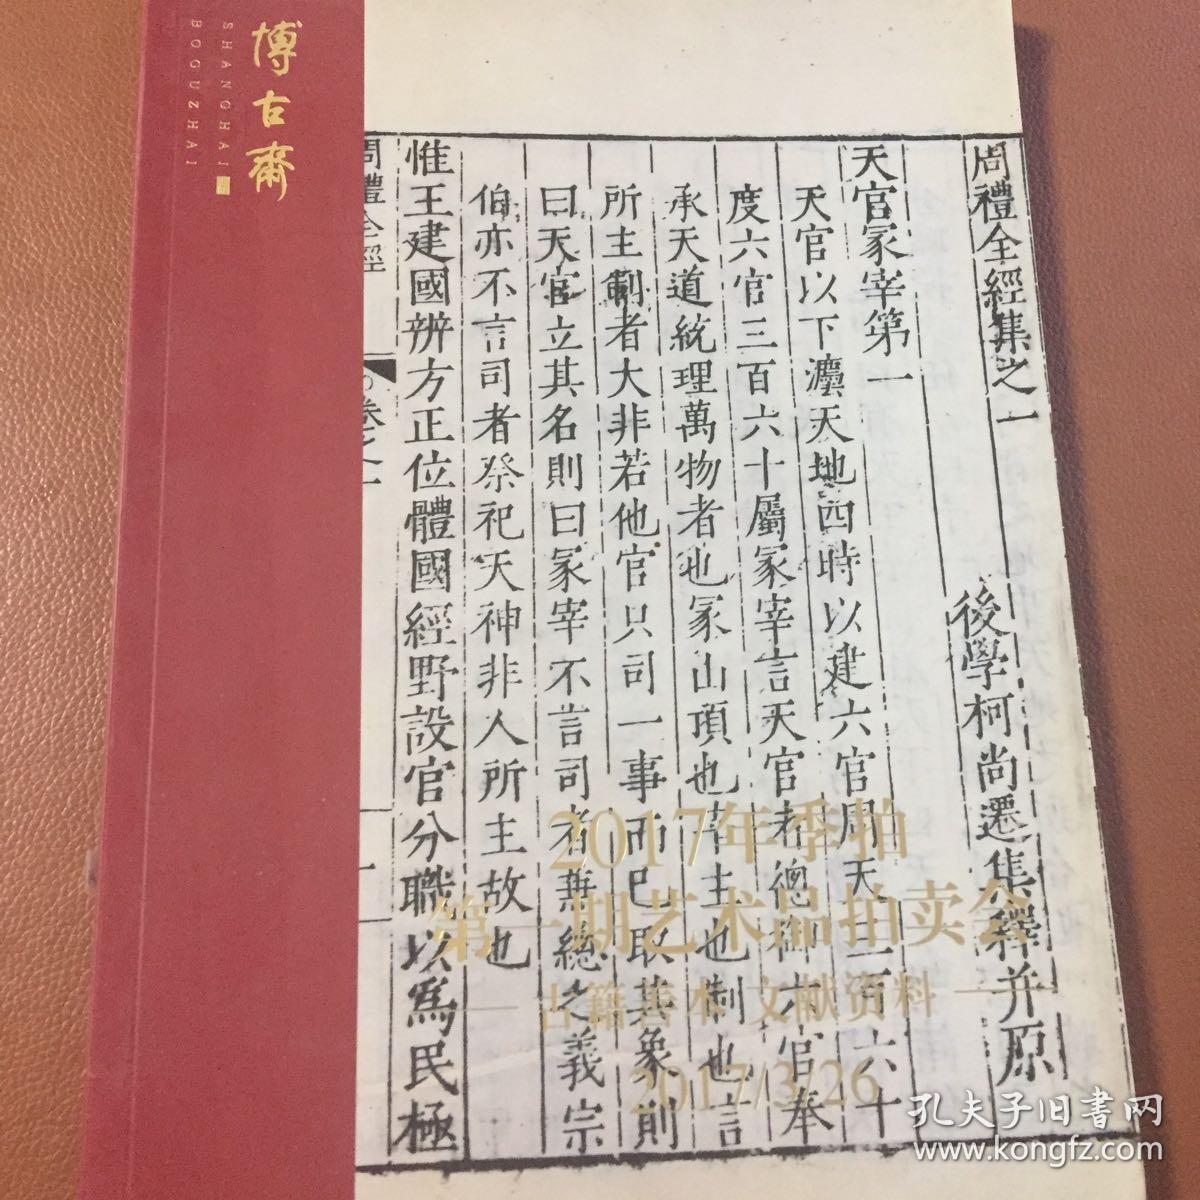 博古斋
SHANGHAI
BOGUZHAI
周禮全經集之一
後學柯尚遷集釋并原
天官冢宰第一
天官以下灋天地四時以建六官周天三百六十
度六官三百六十屬冢宰言天官者緫御六官奉
承天道統理萬物者也冢山頂也宰主也制也言
所主制者大非若他官只司一事而已取其象則
曰天官立其名則曰冢宰不言司者兼緫之義宗
伯亦不言司者祭祀天神非人所主故也
惟王建國辨方正位體國經野設官分職以爲民極
周禮全經
卷之一
一
2017年季拍
第一期艺术品拍卖会
古籍善本 文献资料
2017/3/26
孔夫子旧书网
www.kongfz.com